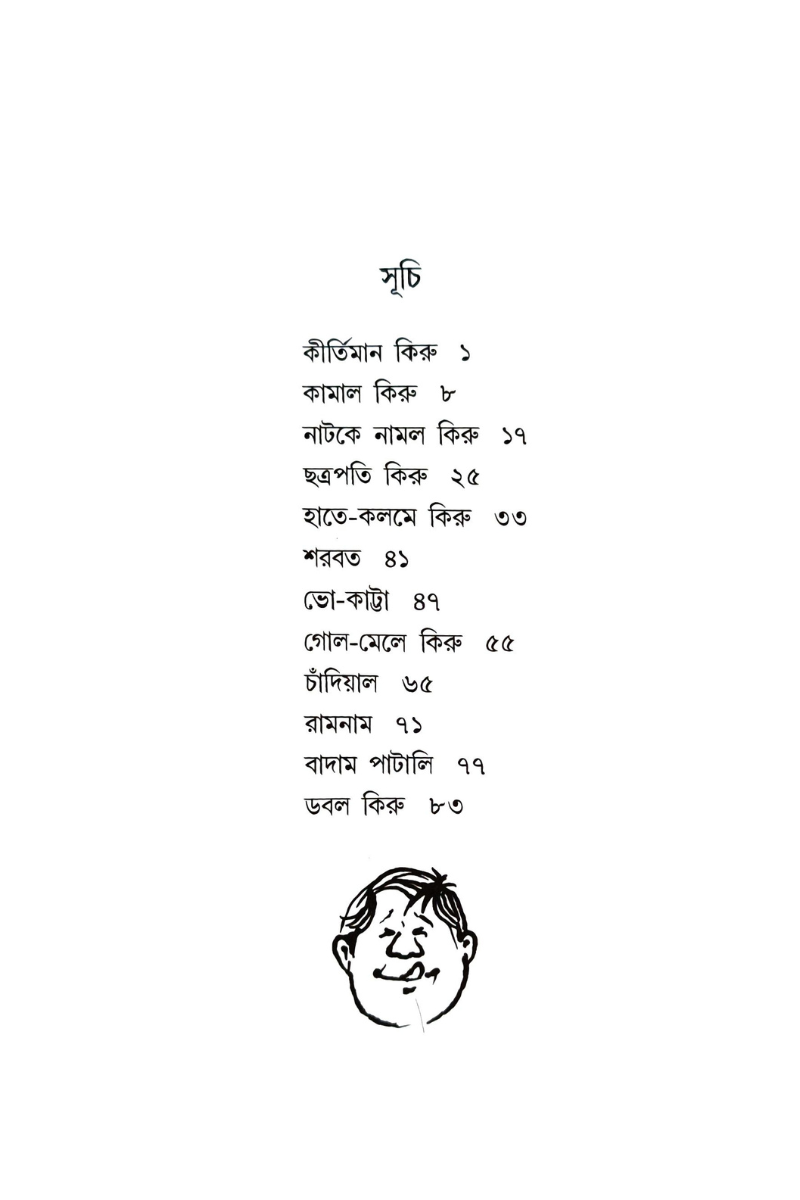 সূচি
কীর্তিমান কিরু ১
কামাল কিরু ৮
নাটকে নামল কিরু ১৭
ছত্রপতি কিরু ২৫
হাতে-কলমে কিরু ৩৩
শরবত ৪১
ভো-কাট্টা ৪৭
গোল-মেলে কিরু ৫৫
চাঁদিয়াল ৬৫
রামনাম ৭১
বাদাম পাটালি ৭৭
ডবল কিরু ৮৩